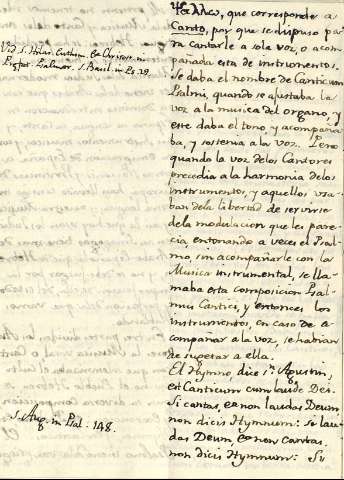 Ψαλλω, que corresponde a
Canto, por que se dispuso pa
ra cantarle a sola voz, o acom
pañada esta de instrumentos.
Se daba el nombre de Canticum
Psalmi, quando se ajustaba la
voz a la musica del organo, y
este daba el tono, y acompaña
ba, y sostenia a la voz. Pero
quando la voz delos Cantores
precedia a la harmonia delos
instrumentos, y aquellos usa
ban dela libertad de servirse
dela modulacion que les pare
cia, entonando a veces el Psal
mo, sin acompañarle con la
Musica instrumental, se lla
maba esta composicion Psal
mus Cantici, y entonces los
instrumentos, en caso de a
compañar a la voz, se habian
de sugetar a ella.
El Hymno, dice Sn. Agustin,
est Canticum cum laude Dei.
Si cantas, et non laudas Deum,
non dicis Hymnum: Si lau
das Deum, et non cantas,
non dicis Hymnum: Si
Vid. S. Hilar. Euthym. Chrisost. in
Psalmor. S. Basil. in Ps. 29.
S. Aug. in Psal. 148.